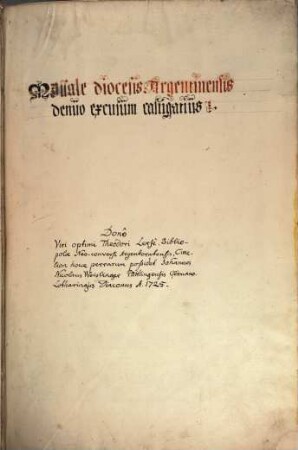 Manuale diocesis Argentinensis
denuo excusum castigatius
Dono
Viri optimi Theodori Lersé Biblio-
polæ Neo-conversi Argentoratensis,
hunc possidet Johannes
Nicolaus Weislinger Püttlingensis
Lotharingus A. 1725.